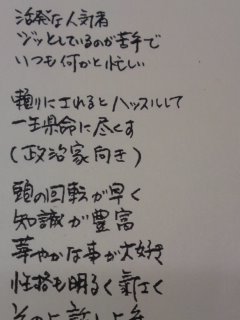 活発な人気者
ジッとしているのが苦手で
いつも何かと忙しい
頼りにされるとハッスルして
一生県命に尽くす
(政治家向き)
頭の回転が早く
知識が豊富
華やかな事が大好き
性格も明るく気さく